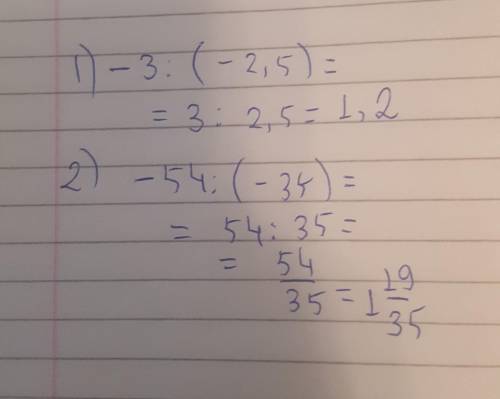 1) - 3 : (- 2,5) =
= 3 : 2,5 = 1,2
2) - 54 : (- 35) =
= 54 : 35 =
= 54/35 = 1 19/35